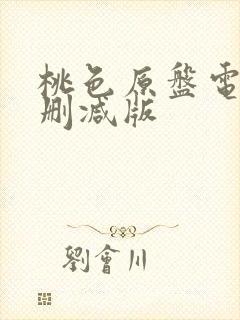 桃色原盤電
删减版
劉會川